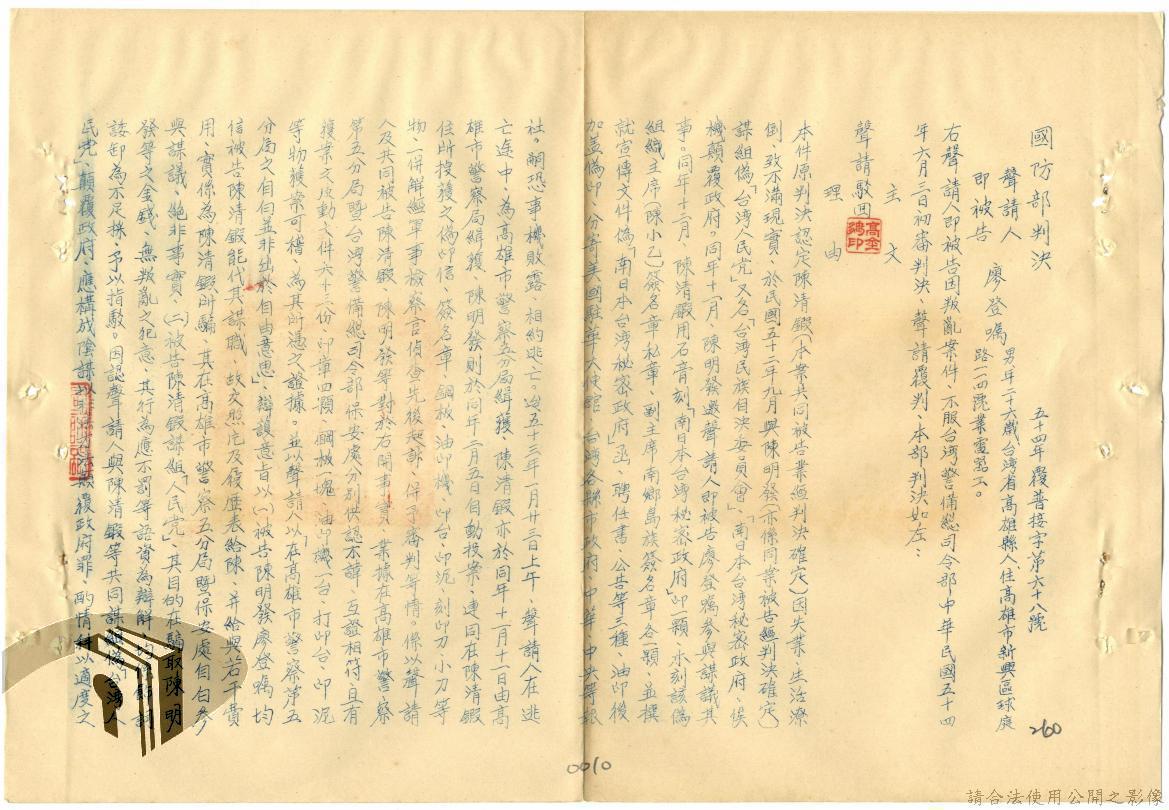 國防部判決
五十四年覆普接字第六十八號
聲請人
即被告 廖登囑 男年二十六歲台灣省高雄縣人住高雄市新興區球庭
路一四號業電器工。
右聲請人即被告因叛亂案件、不服台灣警備總司令部中華民國五十四
年六月三日初審判決、聲請覆判、本部判決如左:
主文
聲請駁回
理由
本件原判決認定陳清鍛(本案共同被告業經判決確定)因失業、生活潦
倒、致不滿現實、於民國五十二年九月與陳明發(亦係同案被告經判決確定)
謀組偽「台湾人民党」又名「台湾民族自决委員會」、「南日本台湾秘密政府、俟
機顛覆政府。同年十一月、陳明發邀聲請人即被告廖登囑参與謀議其
事。同年十二月、陳清鍛用石膏刻「南日本台湾秘密政府」印一顆、木刻該偽
組織主席(陳小乙)簽名章私章、副主席南鄉島族簽名章各一顆、並撰
就宣傳文件偽「南日本台湾秘密政府」函、聘任書、公告等三種、油印後
加盖偽印、分寄美國駐華大使館、台灣各縣市政府、中華、中央等報
社。嗣恐事機敗露、相約逃亡、迨五十三年一月廿三日上午、聲請人在逃
亡途中、為高雄市警察五分局緝獲、陳清鍛亦於同年十一月十一日由高
雄市警察局緝獲、陳明發則於同年二月五日自動投案、連同在陳清鍛
住所搜獲之偽印信、簽名章、鋼板、油印機、印台、印泥、刻印刀、小刀等
物一併解經軍事檢察官偵查先後起訴、併予審判等情。係以聲請
人及共同被告陳清鍛、陳明發等對於右開事實、業據在高雄市警察
第五分局暨台灣警備總司令部保安處分別供認不諱、互證相符且有
獲案之反動文件六十三份、印章四顆、鋼板一塊、油印機一台、打印台、印泥
等物獲案可稽、為其所憑之證據。並以聲請人以「在高雄市警察第五
分局之自白並非出於自由意思」辯護意旨以(一)被告陳明發廖登囑均
信被告陳清鍛能代其謀職、故交照片及履歷表給陳、并給與若干費
用、實係為陳清鍛所騙、其在高雄市警察五分局暨保安處自白参
與謀議、絕非事實、(二)被告陳清鍛謀組「人民党」、其目的在騙取陳明
發等之金錢、無叛亂之犯意、其行為應不罰等語資為辯解、均係飾詞
諉卸為不足採、予以指駁。因認聲請人與陳清鍛等共同謀組偽「台灣人
民党」、顛覆政府、應構成陰謀以非法方法顛覆政府罪、酌情科以適度之
260
0010
請合法使用公開之影像